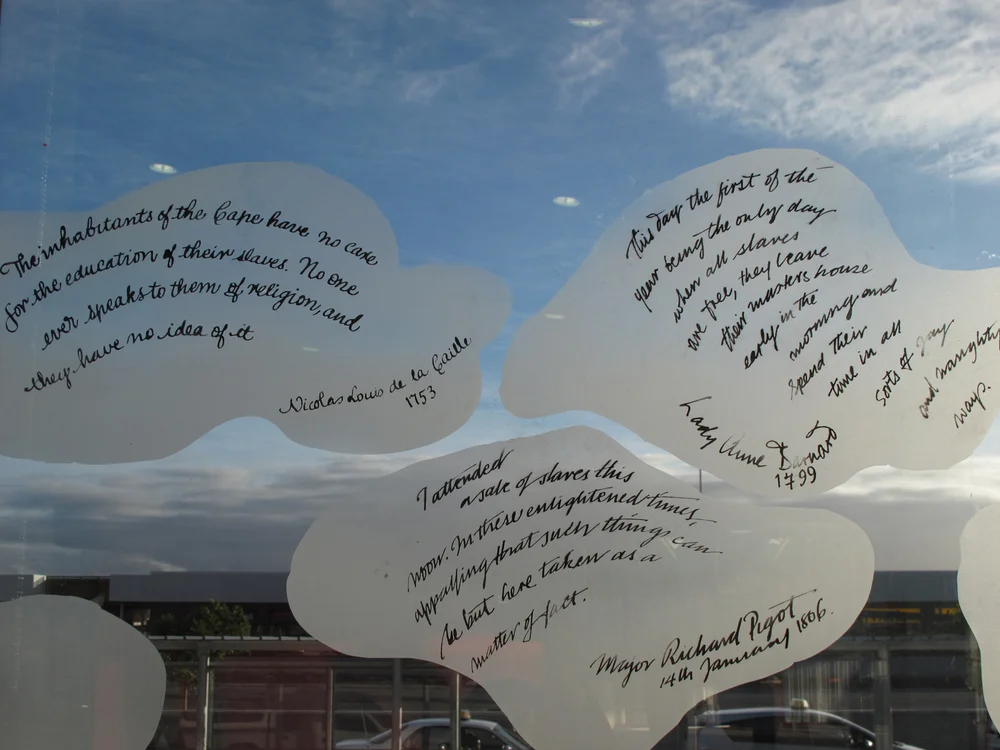 The inhabitants of the Cape have no care
for the education of their slaves. No one
ever speaks to them of religion, and
they have no idea of it
Nicolas Louis de la Caille
1753
This day the first of the
year being the only day
when all slaves
are free, they leave
their masters house
early in the
morning and
spend their
time in all
sorts of Jay
and naughty
ways.
Lady Anne Barnard
1799
I attended
a sale of slaves this
noon. In these enlightened times,
appalling that such things can
be but here taken as a
matter of fact.
Major Richard Pigot
14th January 1806.